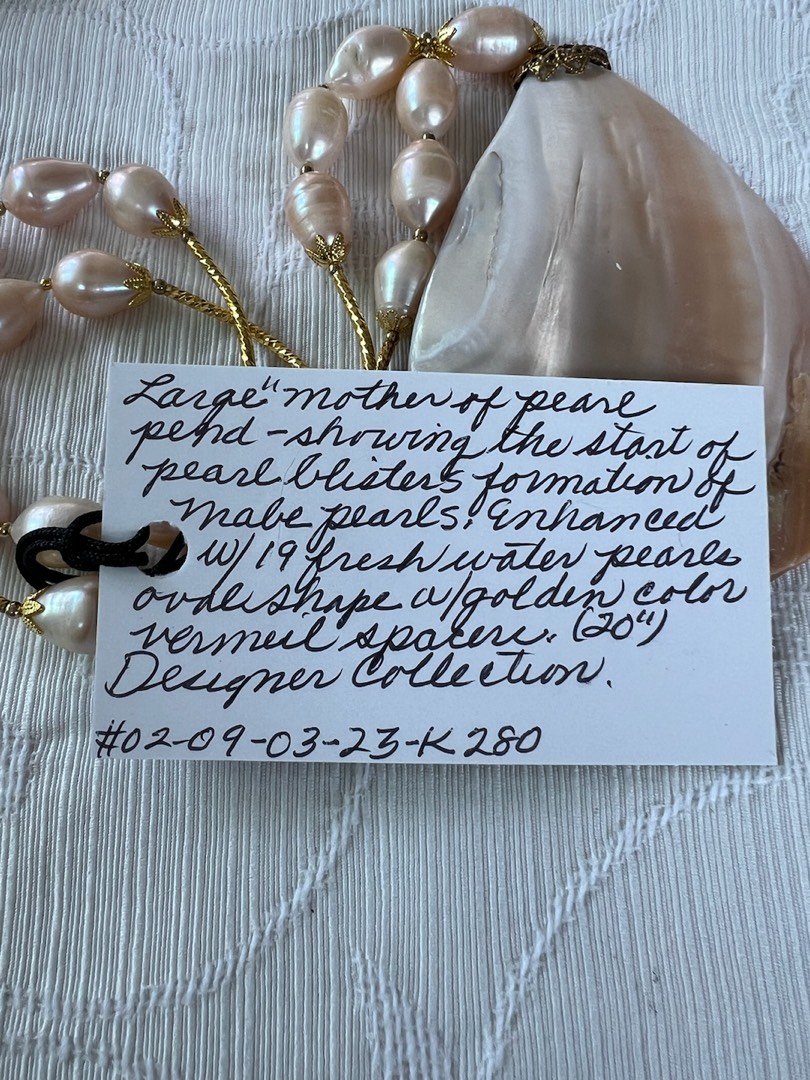 Large" mother of pearl
pend - showing the start of
pearl blisters formation of
Mabe pearls. Enhanced
w/ 19 fresh water pearls
oval shape w/ golden color
vermeil spacers. (20")
Designer Collection.
#02-09-03-23-K280